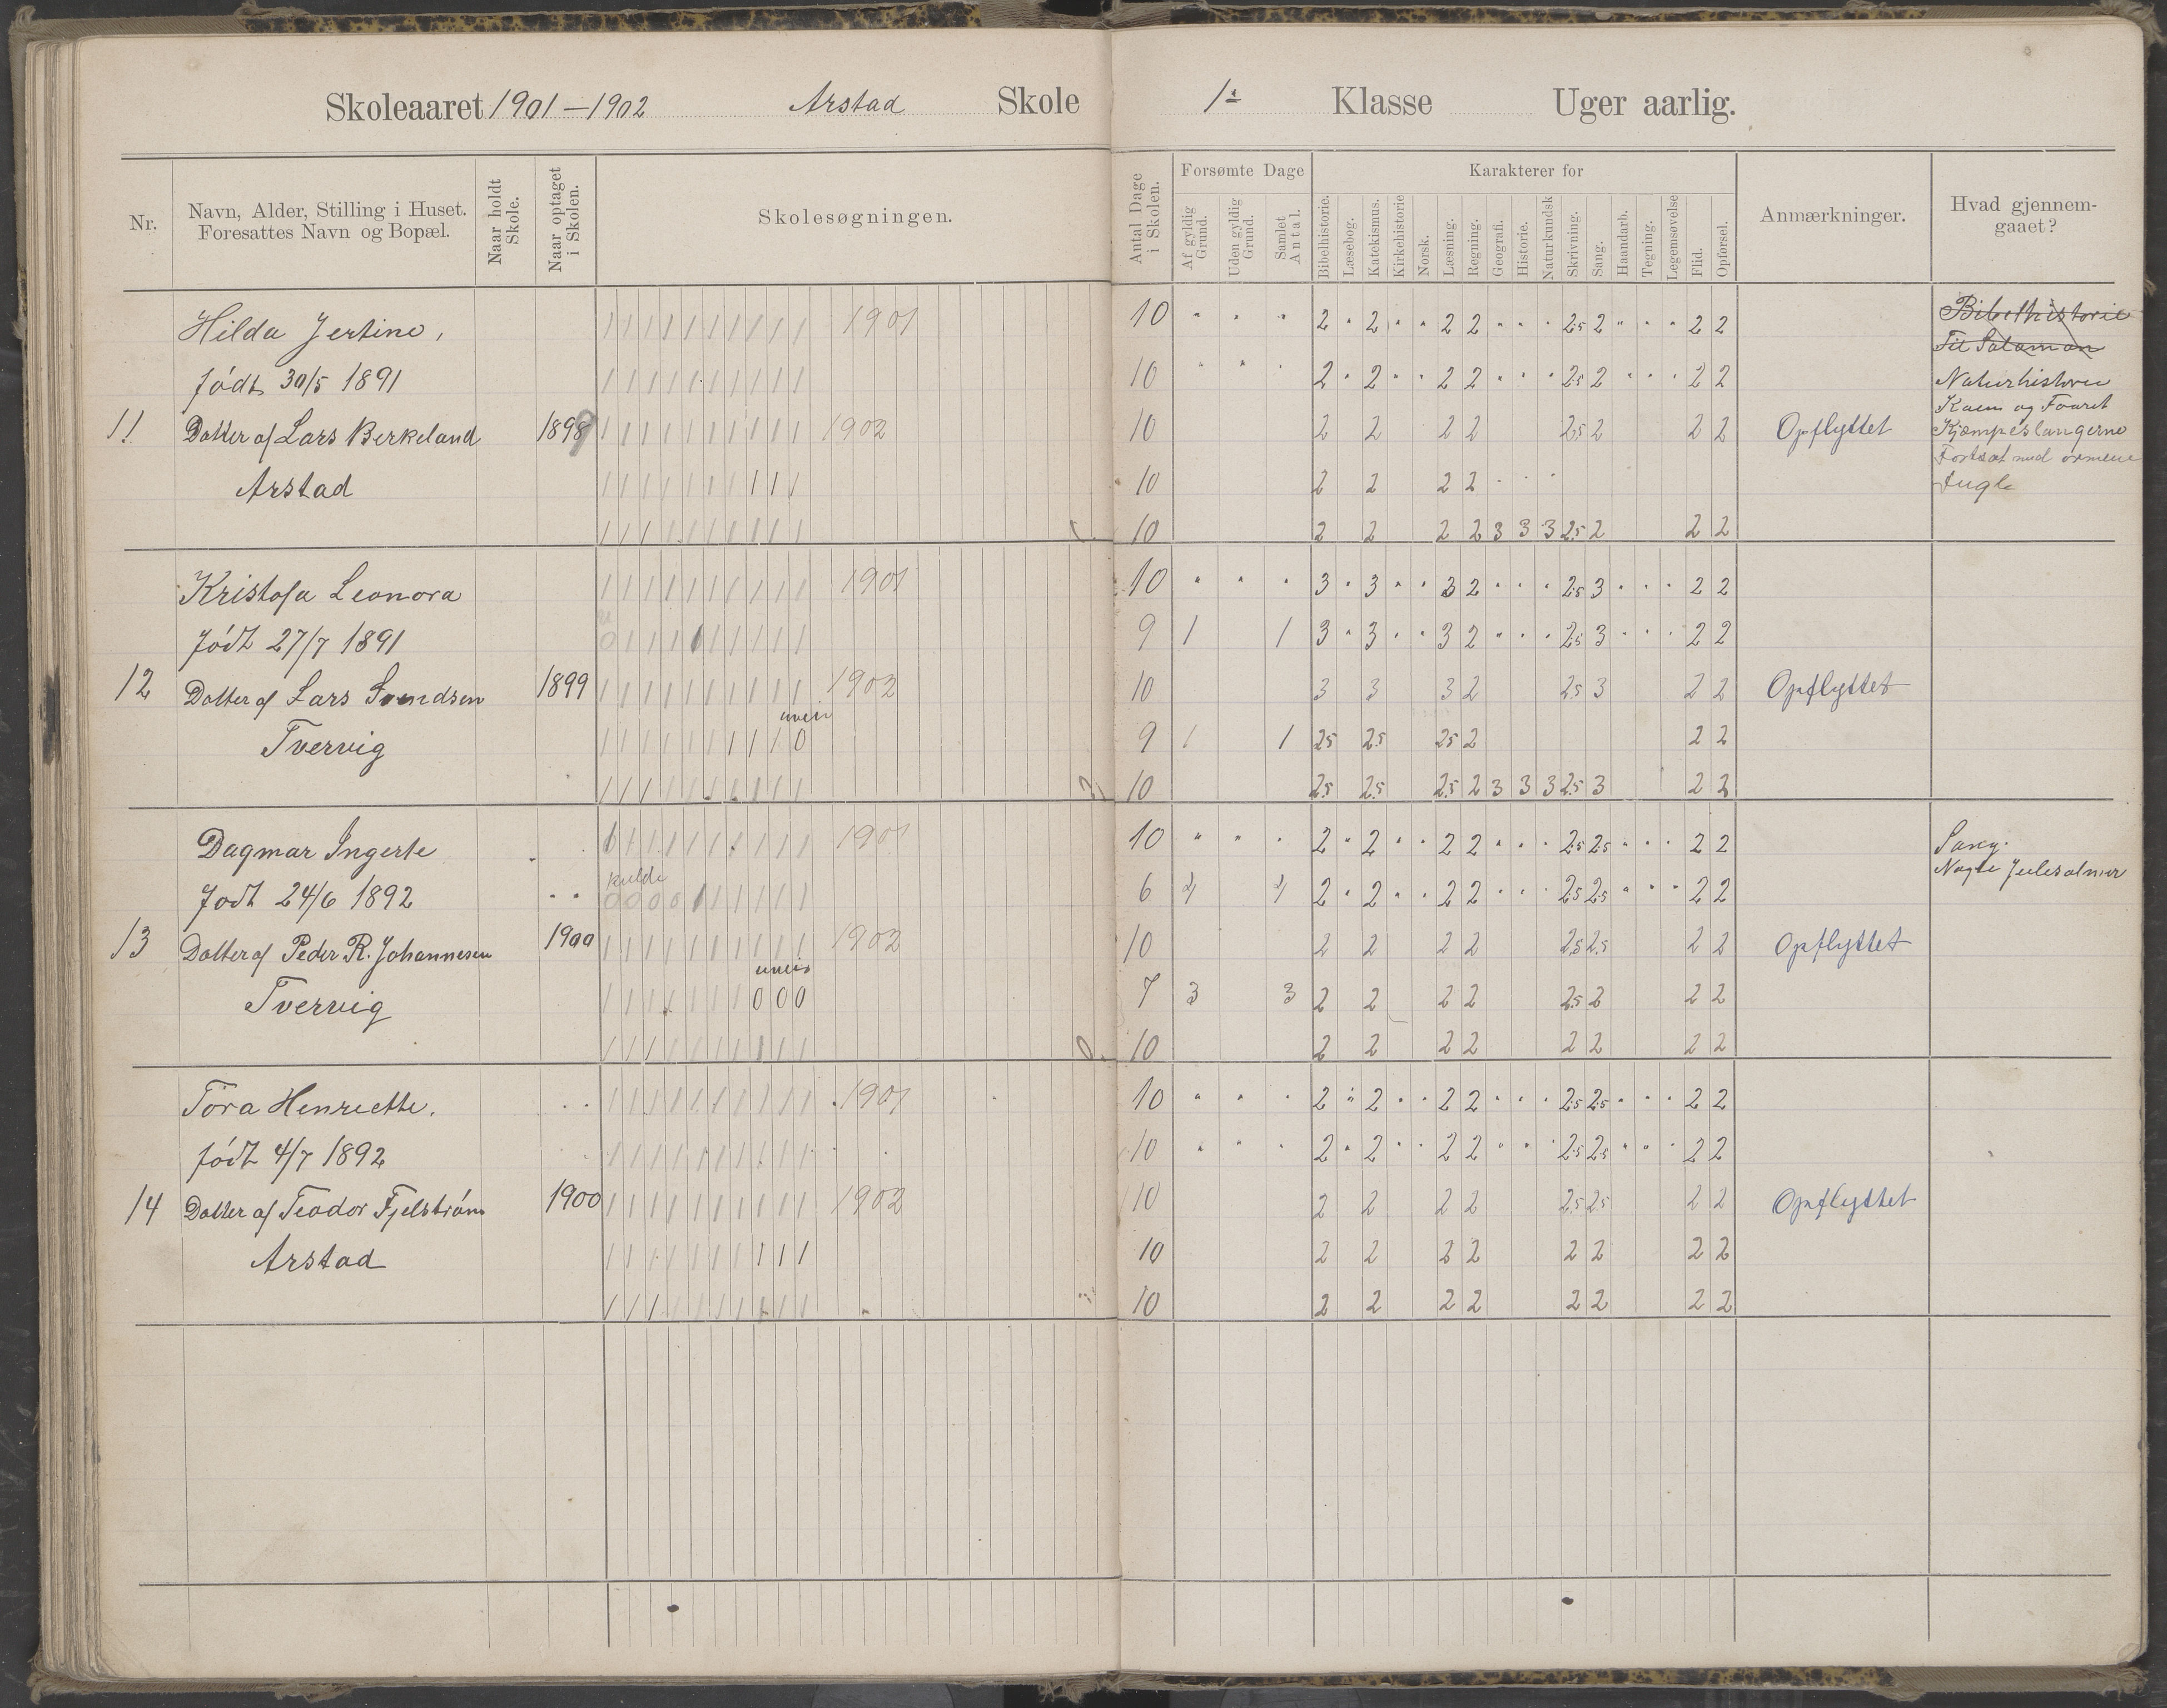 Skoleaaret 1901-1902 Arstad Skole 1ste Klasse Uger aarlig.
Nr.
Navn, Alder, Stilling i Huset.
Foresattes Navn og Bopæl.
Naar holdt Skole.
Naar optaget i Skolen.
Skolesøgningen.
Antal Dage i Skolen.
Forsømte Dage
Af gyldig Grund.
Uden gyldig Grund.
Samlet Antal.
Karakterer for
Bibelhistorie.
Læsebog.
Katekismus.
Kirkehistorie
Norsk.
Læsning.
Regning.
Geografi.
Historie.
Naturkundsk
Skrivning.
Sang.
Haandarb.
Tegning.
Legemsøvelse
Flid.
Opførsel.
Anmærkninger.
Hvad gjennemgaaet?
Hilda Jertine, 1901 10 2 2 2 2 2.5 2 2 2
Bibelhistorie
Til Salamon
født 30/5 1891 10 2 2 2 2 2.5 2 2 2
Naturhistorie
Kuen og Faaret
11 Datter af Lars Berkeland 1899 1902 10 2 2 2 2 2.5 2 2 2 Opflyttet
Kjæmpeslangerne
Fortsat med ormene
Arstad 10 2 2 2 2
Fugle
10 2 2 2 2 3 3 3 2.5 2 2 2
Kristofa Leonora 1901 10 3 3 3 2 2.5 3 2 2
født 27/7 1891 9 1 1 3 3 3 2 2.5 3 2 2
12 Datter af Lars Sundsen 1899 1902 10 3 3 3 2 2.5 3 2 2 Opflyttet
uveir
Tvervig 0 9 1 1 2.5 2.5 2.5 2 2 2
10 2.5 2.5 2.5 2 3 3 3 2.5 3 2 2
Dagmar Ingerte 1901 10 2 2 2 2 2.5 2.5 2 2
Sang.
Nogle Julesalmer
kulde
født 24/6 1892 0 0 0 0 6 4 4 2 2 2 2 2.5 2.5 2 2
13 Datter af Peder R. Johannesen 1900 1902 10 2 2 2 2 2.5 2.5 2 2 Opflyttet
uveir
Tvervig 0 0 0 7 3 3 2 2 2 2 2.5 2 2 2
10 2 2 2 2 2 2 2 2
Tora Henriette. 1901 10 2 2 2 2 2.5 2.5 2 2
født 4/7 1892 10 2 2 2 2 2.5 2.5 2 2
14 Datter af Teodor Fjelstrøm 1900 1902 10 2 2 2 2 2.5 2.5 2 2 Opflyttet
Arstad 10 2 2 2 2 2 2 2 2
10 2 2 2 2 2 2 2 2